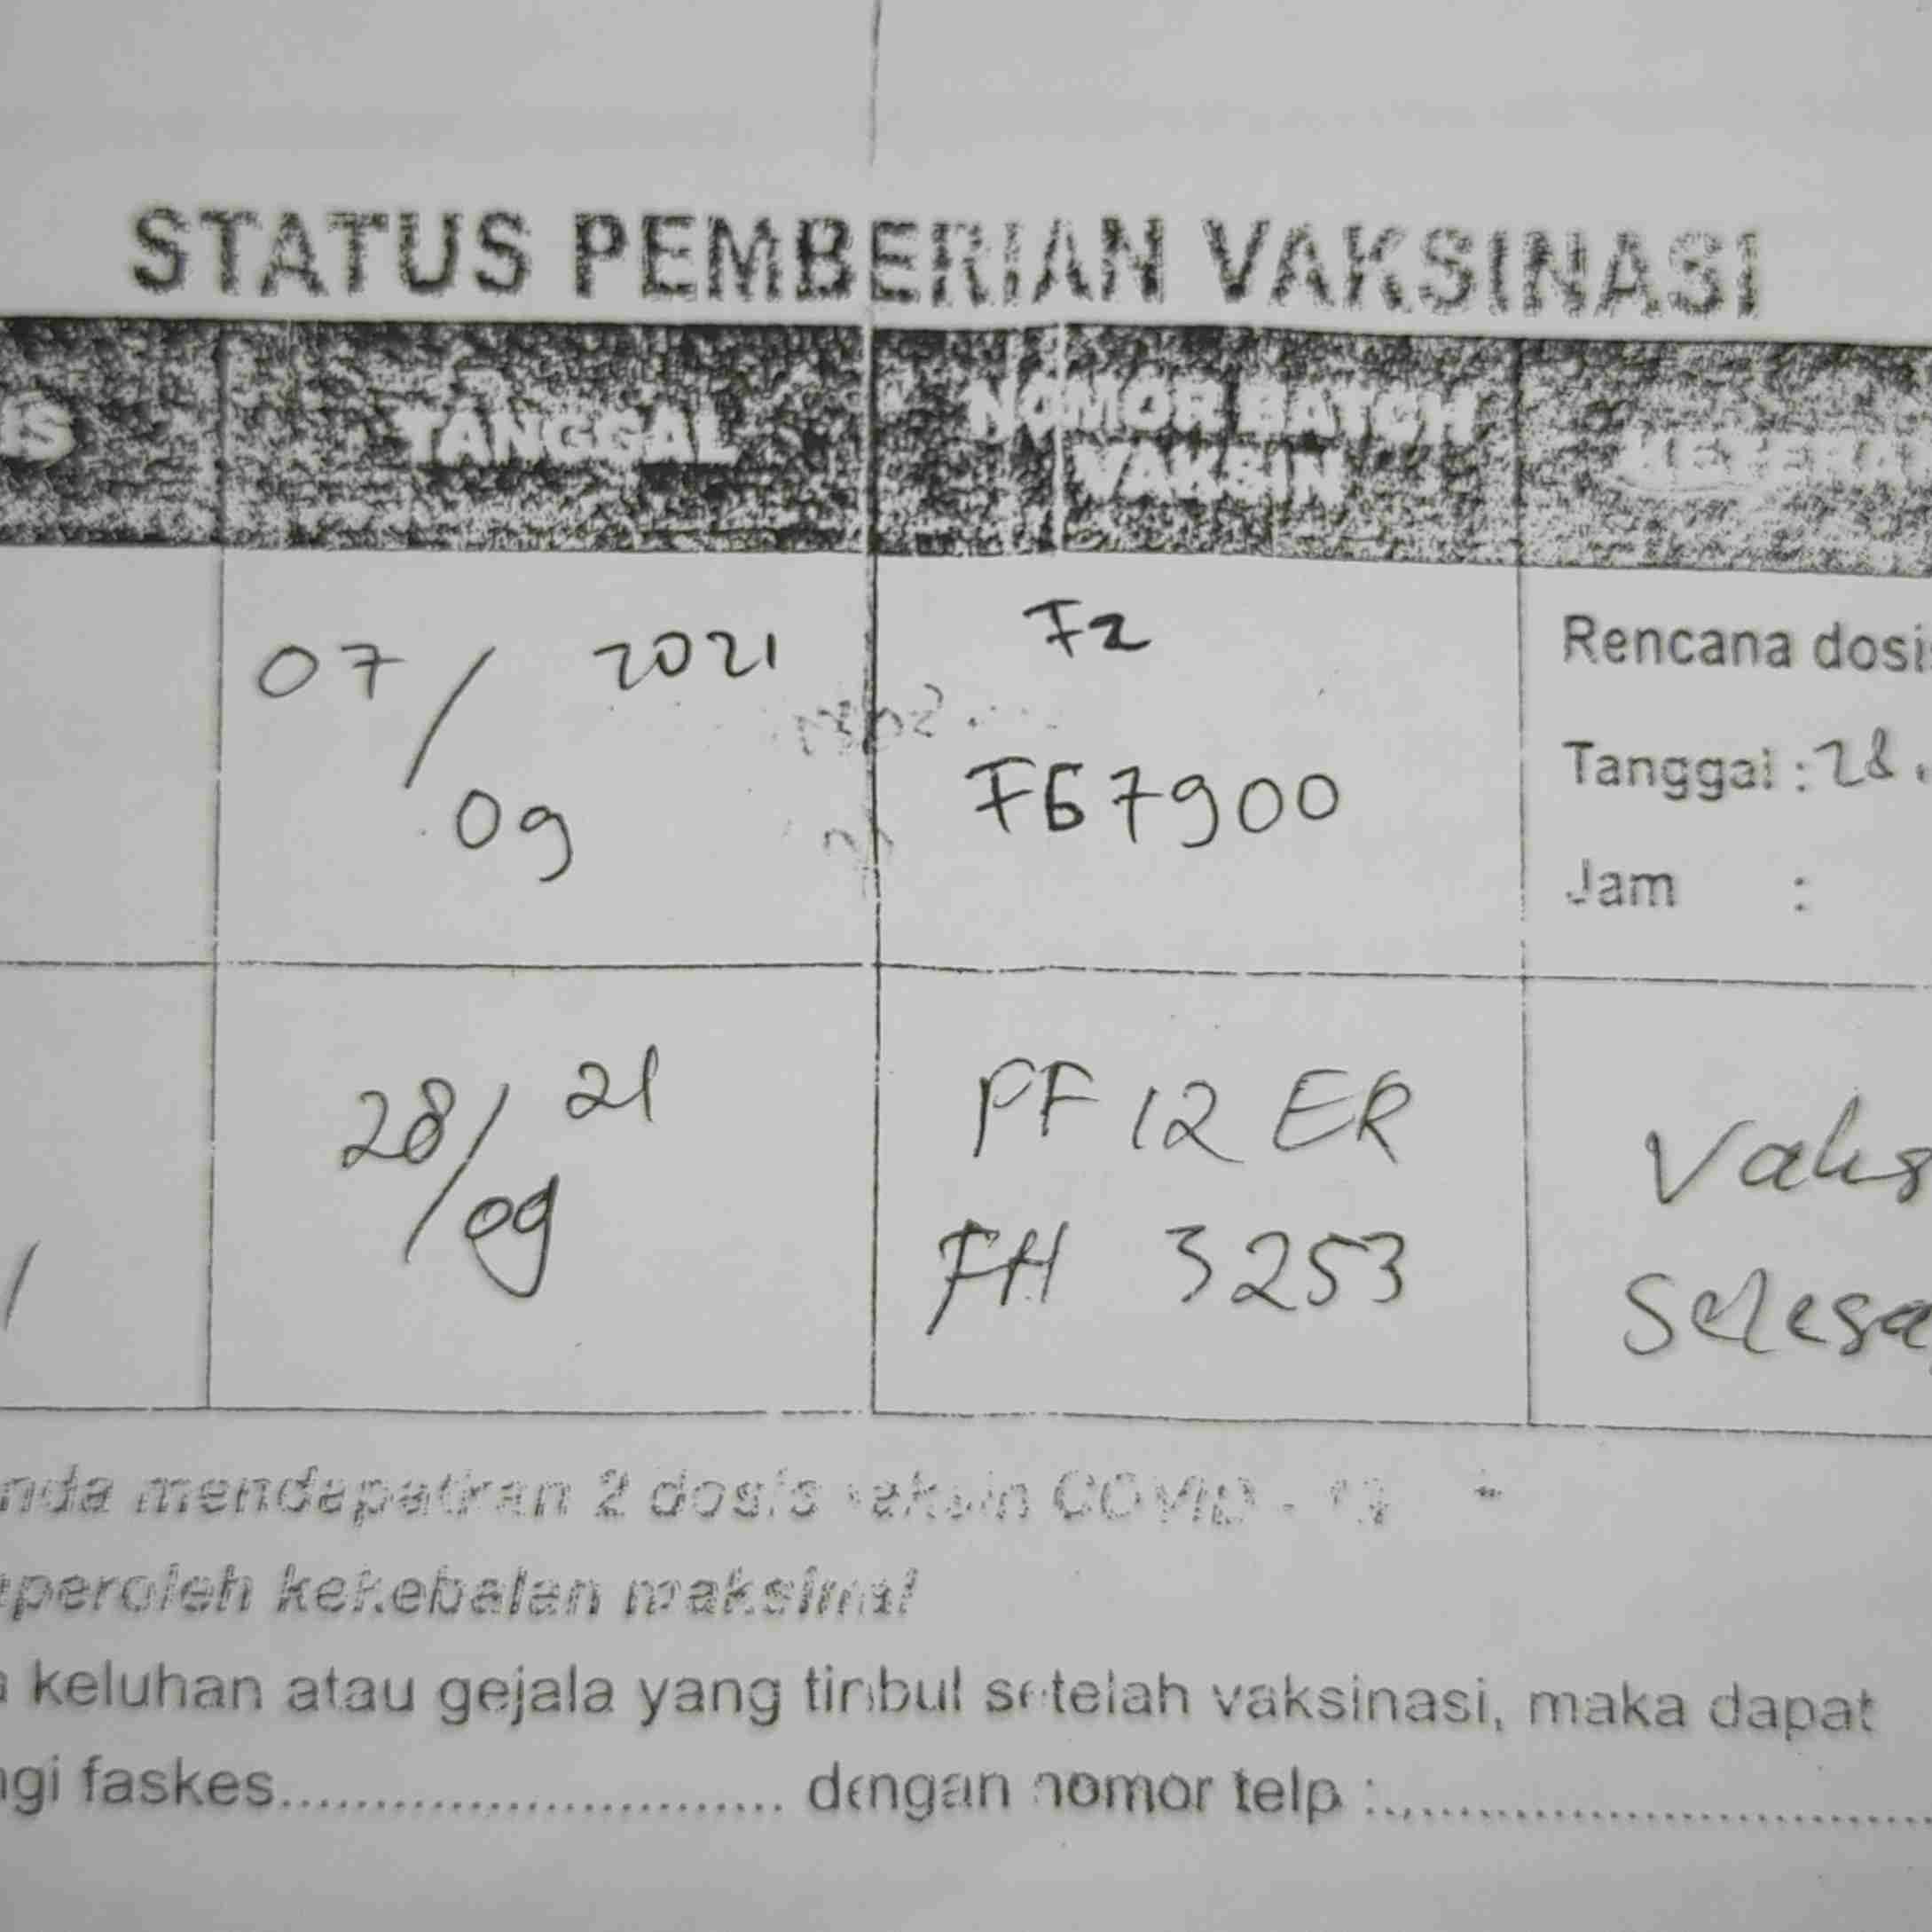 STATUS PEMBERIAN VAKSINASI
IS TANGGAL NOMOR BATCH VAKSIN KETERAN
07/09 2021
F2
F67900
Rencana dosis
Tanggal : 28.
Jam :
28/09 21
PF 12 ER
FH 3253
Vaks
Selesa
nda mendapatkan 2 dosis vaksin COVID - 19
peroleh kekebalan maksimal
keluhan atau gejala yang timbul setelah vaksinasi, maka dapat
gi faskes............................ dengan nomor telp :................................